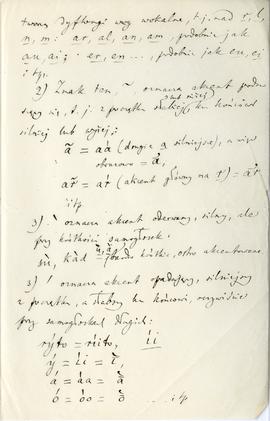 tworzą dyftongi wraz wokalne, t. j. nad r, l,
n, m: ar, al, an, am, podobnie jak
au, ai; er, en ..., podobnie jak eu, ei
itp.
2) Znak ten, ~, oznacza akcent podno-
szący się, t. j. z początku słabiej, ku końcowi
silniej lub wyżej;
ã = aá (drugie a silniejsze), a więc
obrazowo = a,
ar̃ = aŕ (akcent główny na r) = ar̃
itp
3) ` oznacza akcent oderwany, silny, ale
przy krótkości samogłosek:
sù, kàd = bardzo krótkie, ostro akcentowane.
3) ´ oznacza akcent opadający, silniejszy
z początku, a słabszy ku końcowi, oczywiście
przy samogłoskach długich:
rýto = ríito, íi
ý = íi = ī,
á = áa = ā
ó = óo = ō ... itp